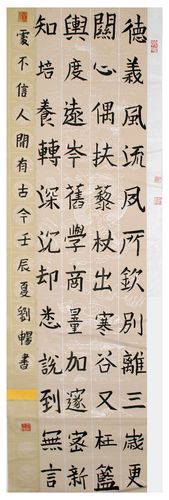 德義風流夙所欽別離三歲更
關心偶扶藜杖出寒谷又枉籃
輿度遠岑舊學商量加邃密新
知培養轉深沉却愁說到無言
處不信人間有古今壬辰夏劉暢書